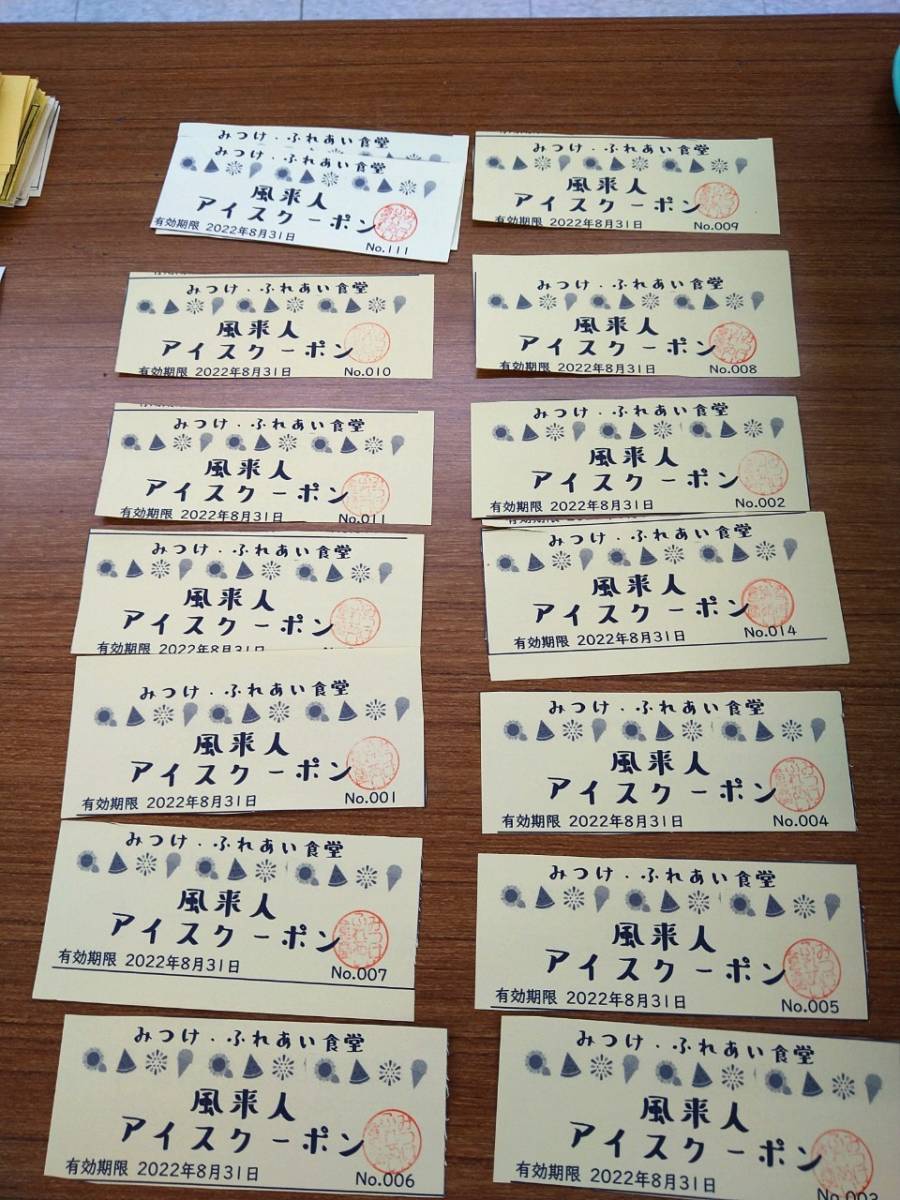 みつけ・ふれあい食堂
みつけ・ふれあい食堂
風来人
アイスクーポン
有効期限 2022年8月31日
No.111
みつけ・ふれあい食堂
風来人
アイスクーポン
有効期限 2022年8月31日
No.009
みつけ・ふれあい食堂
風来人
アイスクーポン
有効期限 2022年8月31日
No.010
みつけ・ふれあい食堂
風来人
アイスクーポン
有効期限 2022年8月31日
No.008
みつけ・ふれあい食堂
風来人
アイスクーポン
有効期限 2022年8月31日
No.011
みつけ・ふれあい食堂
風来人
アイスクーポン
有効期限 2022年8月31日
No.002
みつけ・ふれあい食堂
風来人
アイスクーポン
有効期限 2022年8月31日
みつけ・ふれあい食堂
風来人
アイスクーポン
有効期限 2022年8月31日
No.014
みつけ・ふれあい食堂
風来人
アイスクーポン
有効期限 2022年8月31日
No.001
みつけ・ふれあい食堂
風来人
アイスクーポン
有効期限 2022年8月31日
No.004
みつけ・ふれあい食堂
風来人
アイスクーポン
有効期限 2022年8月31日
No.007
みつけ・ふれあい食堂
風来人
アイスクーポン
有効期限 2022年8月31日
No.005
みつけ・ふれあい食堂
風来人
アイスクーポン
有効期限 2022年8月31日
No.006
みつけ・ふれあい食堂
風来人
アイスクーポン
有効期限 2022年8月31日
No.003